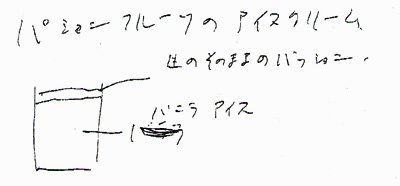 パションフルーツのアイスクリーム
生のそのままのパッション.
バニラ アイス